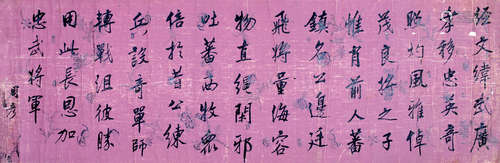 經文緯武廣
孝移忠英奇
照灼風雅倬
茂良將之子
惟肖前人蕃
鎮名公邊廷
飛將量海容
物直繩閑邪
吐蕃西牧眾
倍於昔公練
兵設奇單師
轉戰彼勝
用此長恩加
忠武將軍